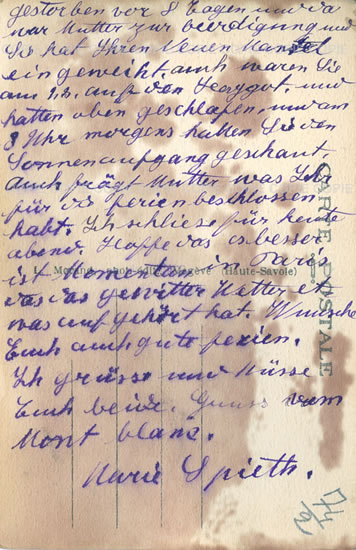 gestorben vor 8 Tagen und da
war Mutter zur beerdigung und
Sie hat Ihren Neuen Mantel
ein geweiht. auch waren Sie
am 1.8. auf den und
hatten oben geschlafen. und am
3 Uhr morgens hatten Sie den
Sonnenaufgang geschaut
auch frägt Mutter was Ihr
für die ferien beschlossen
habt. Ich schliese für heute
abend. Hoffe das es besser
ist in Paris
das das gewitter Hatter et
was aufgehört hat. Wünsche
Euch auch gute ferien.
Ich grüsse und Küsse
Euch beide. Gruss vom
Mont blanc.
Marie Spieth.
CARTE POSTALE
phot. (Haute-Savoie)